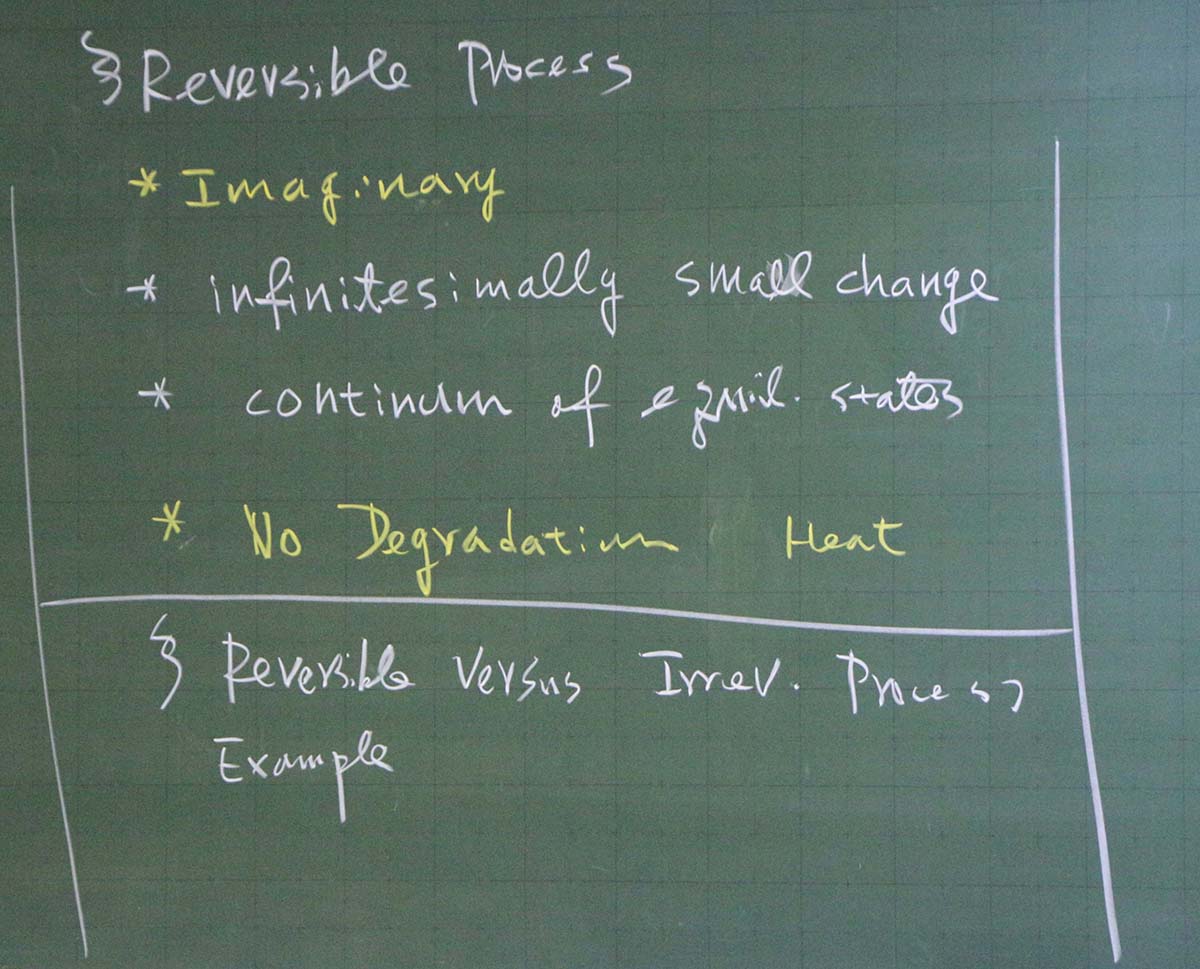 § Reversible Process
* Imaginary
* infinitesimally small change
* continum of equil. states
* No Degradation Heat
§ Reversible Versus Irrev. Process
Example